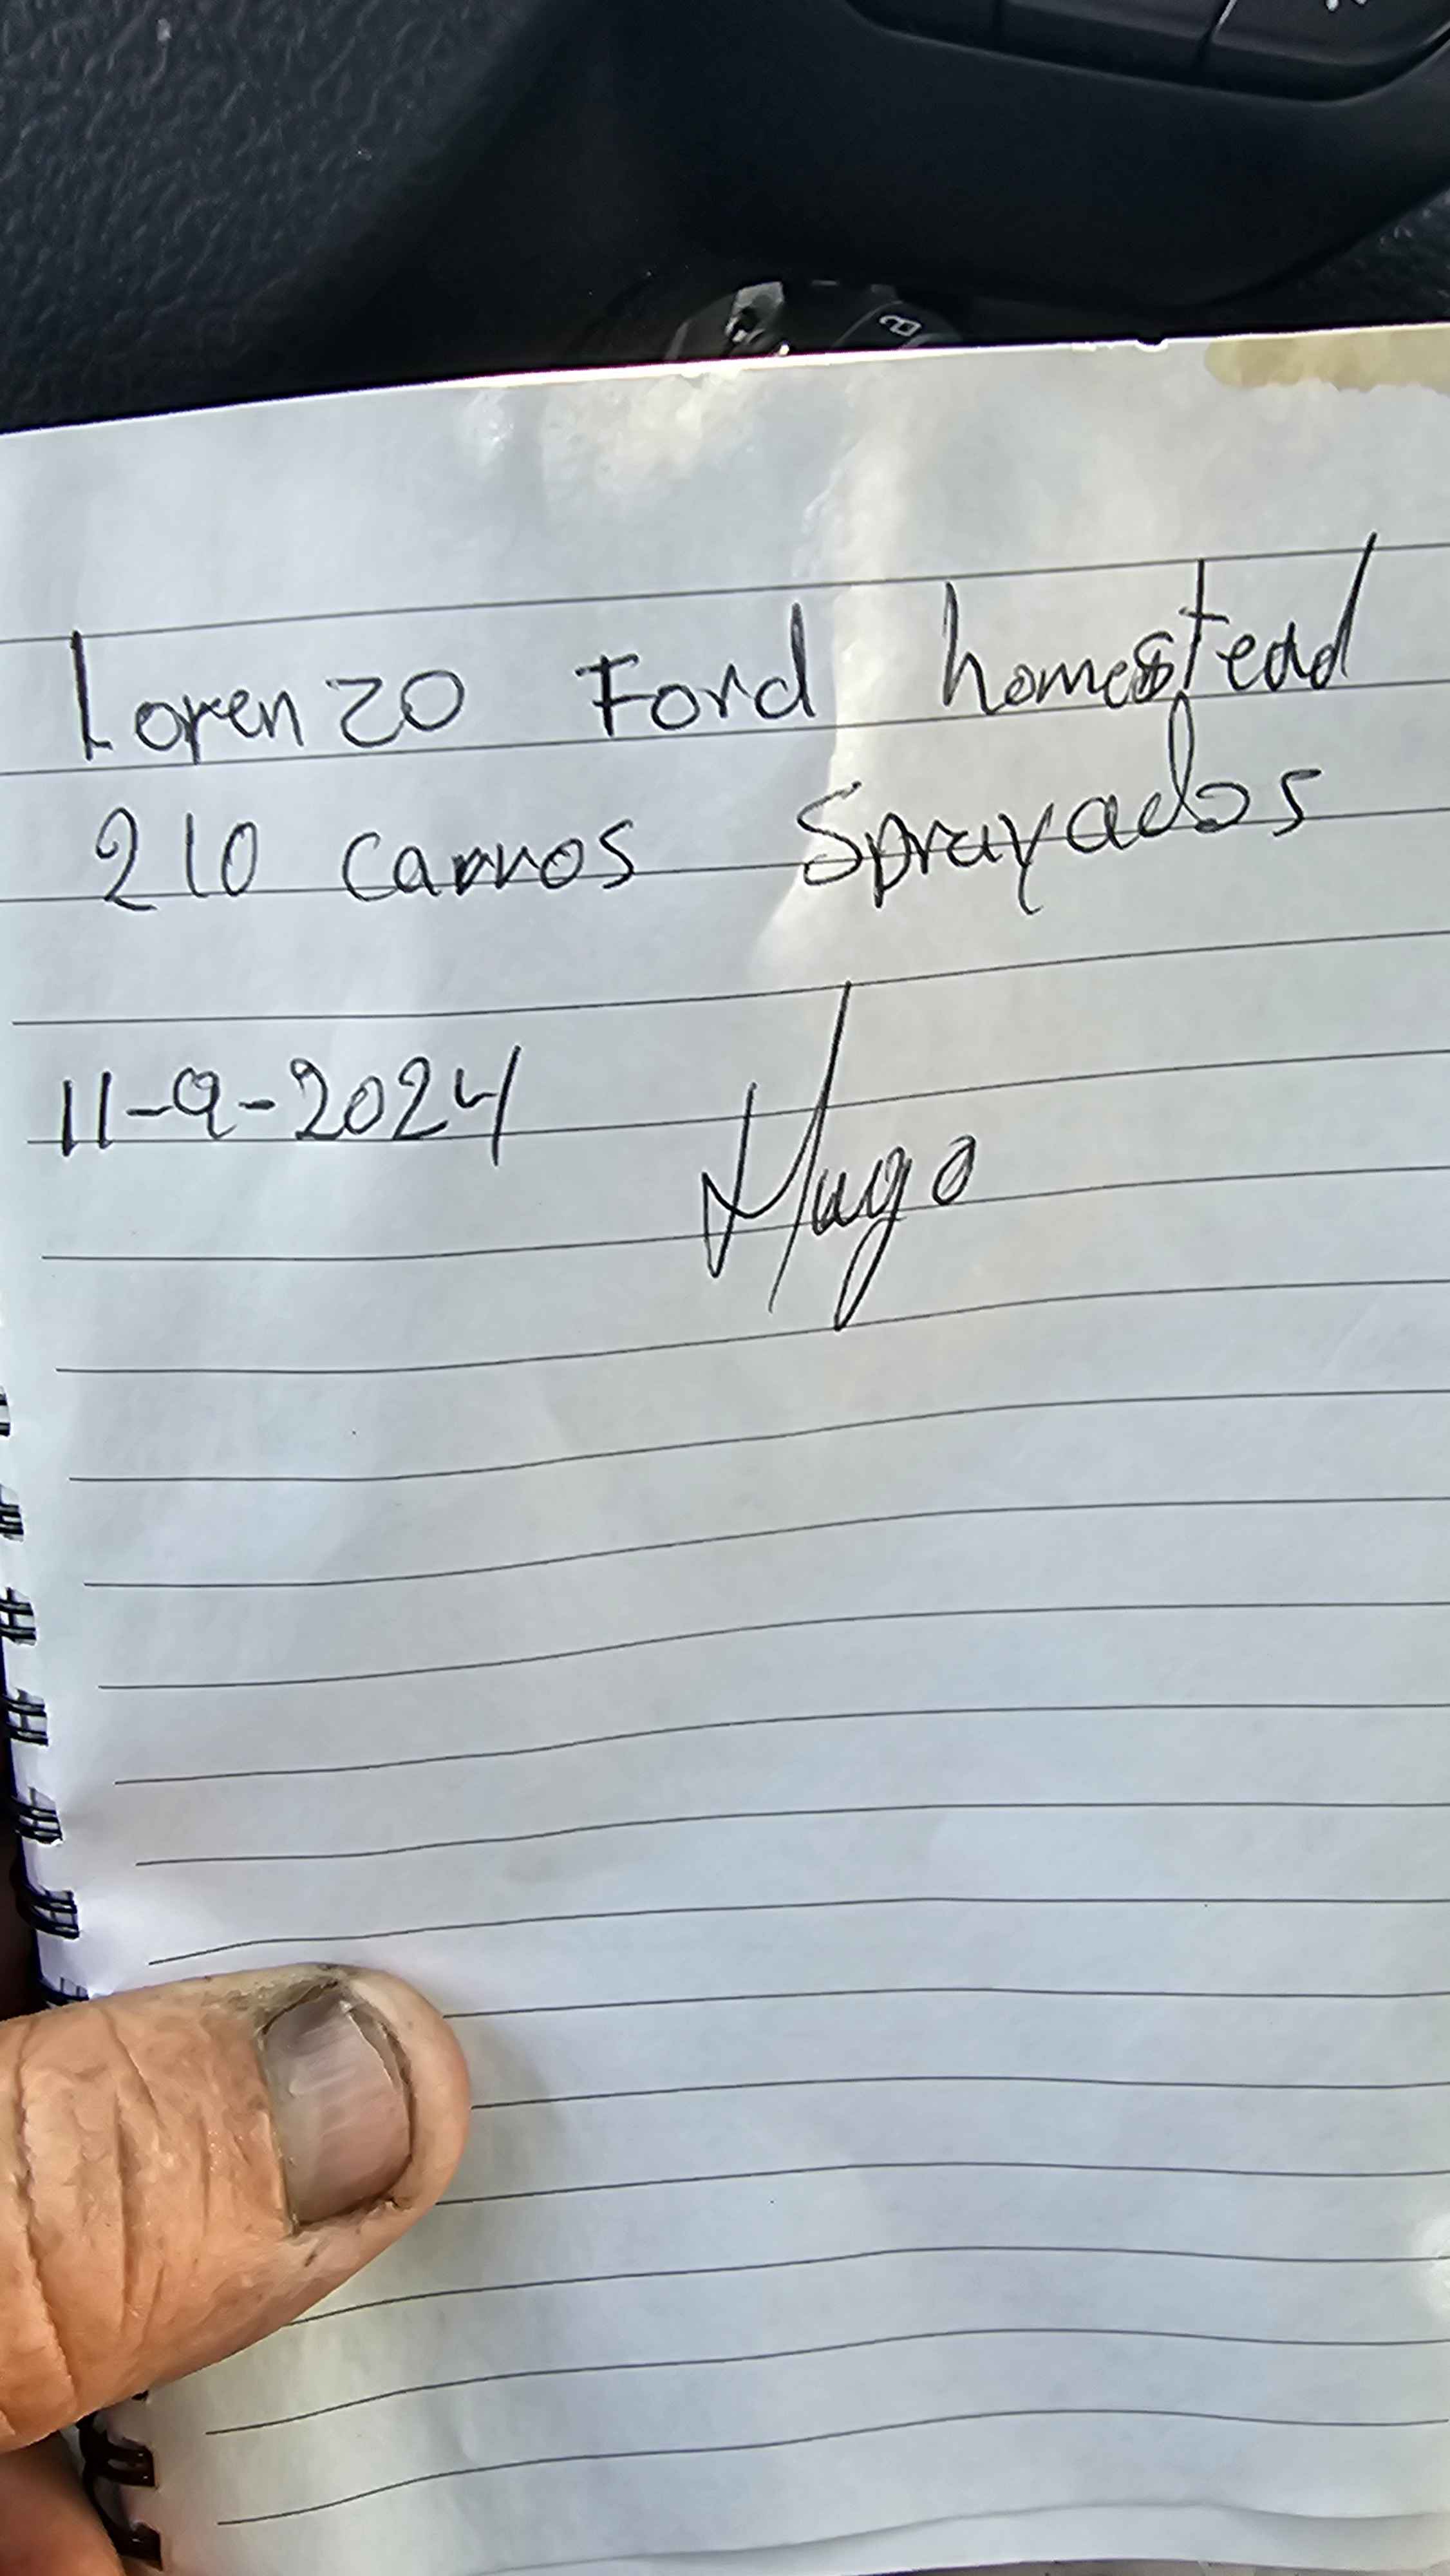 Lorenzo Ford homestead
210 carros Sprayados
11-9-2024 Hugo